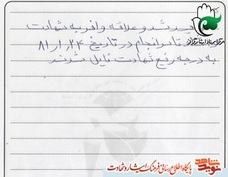 شد و علاقه وافر به شهادت
تا سرانجام در تاریخ ۸۱/۱/۲۴
به درجه رفیع شهادت نایل شدند
پایگاه اطلاع رسانی فرهنگ ایثار و شهادت
نوید شاهد